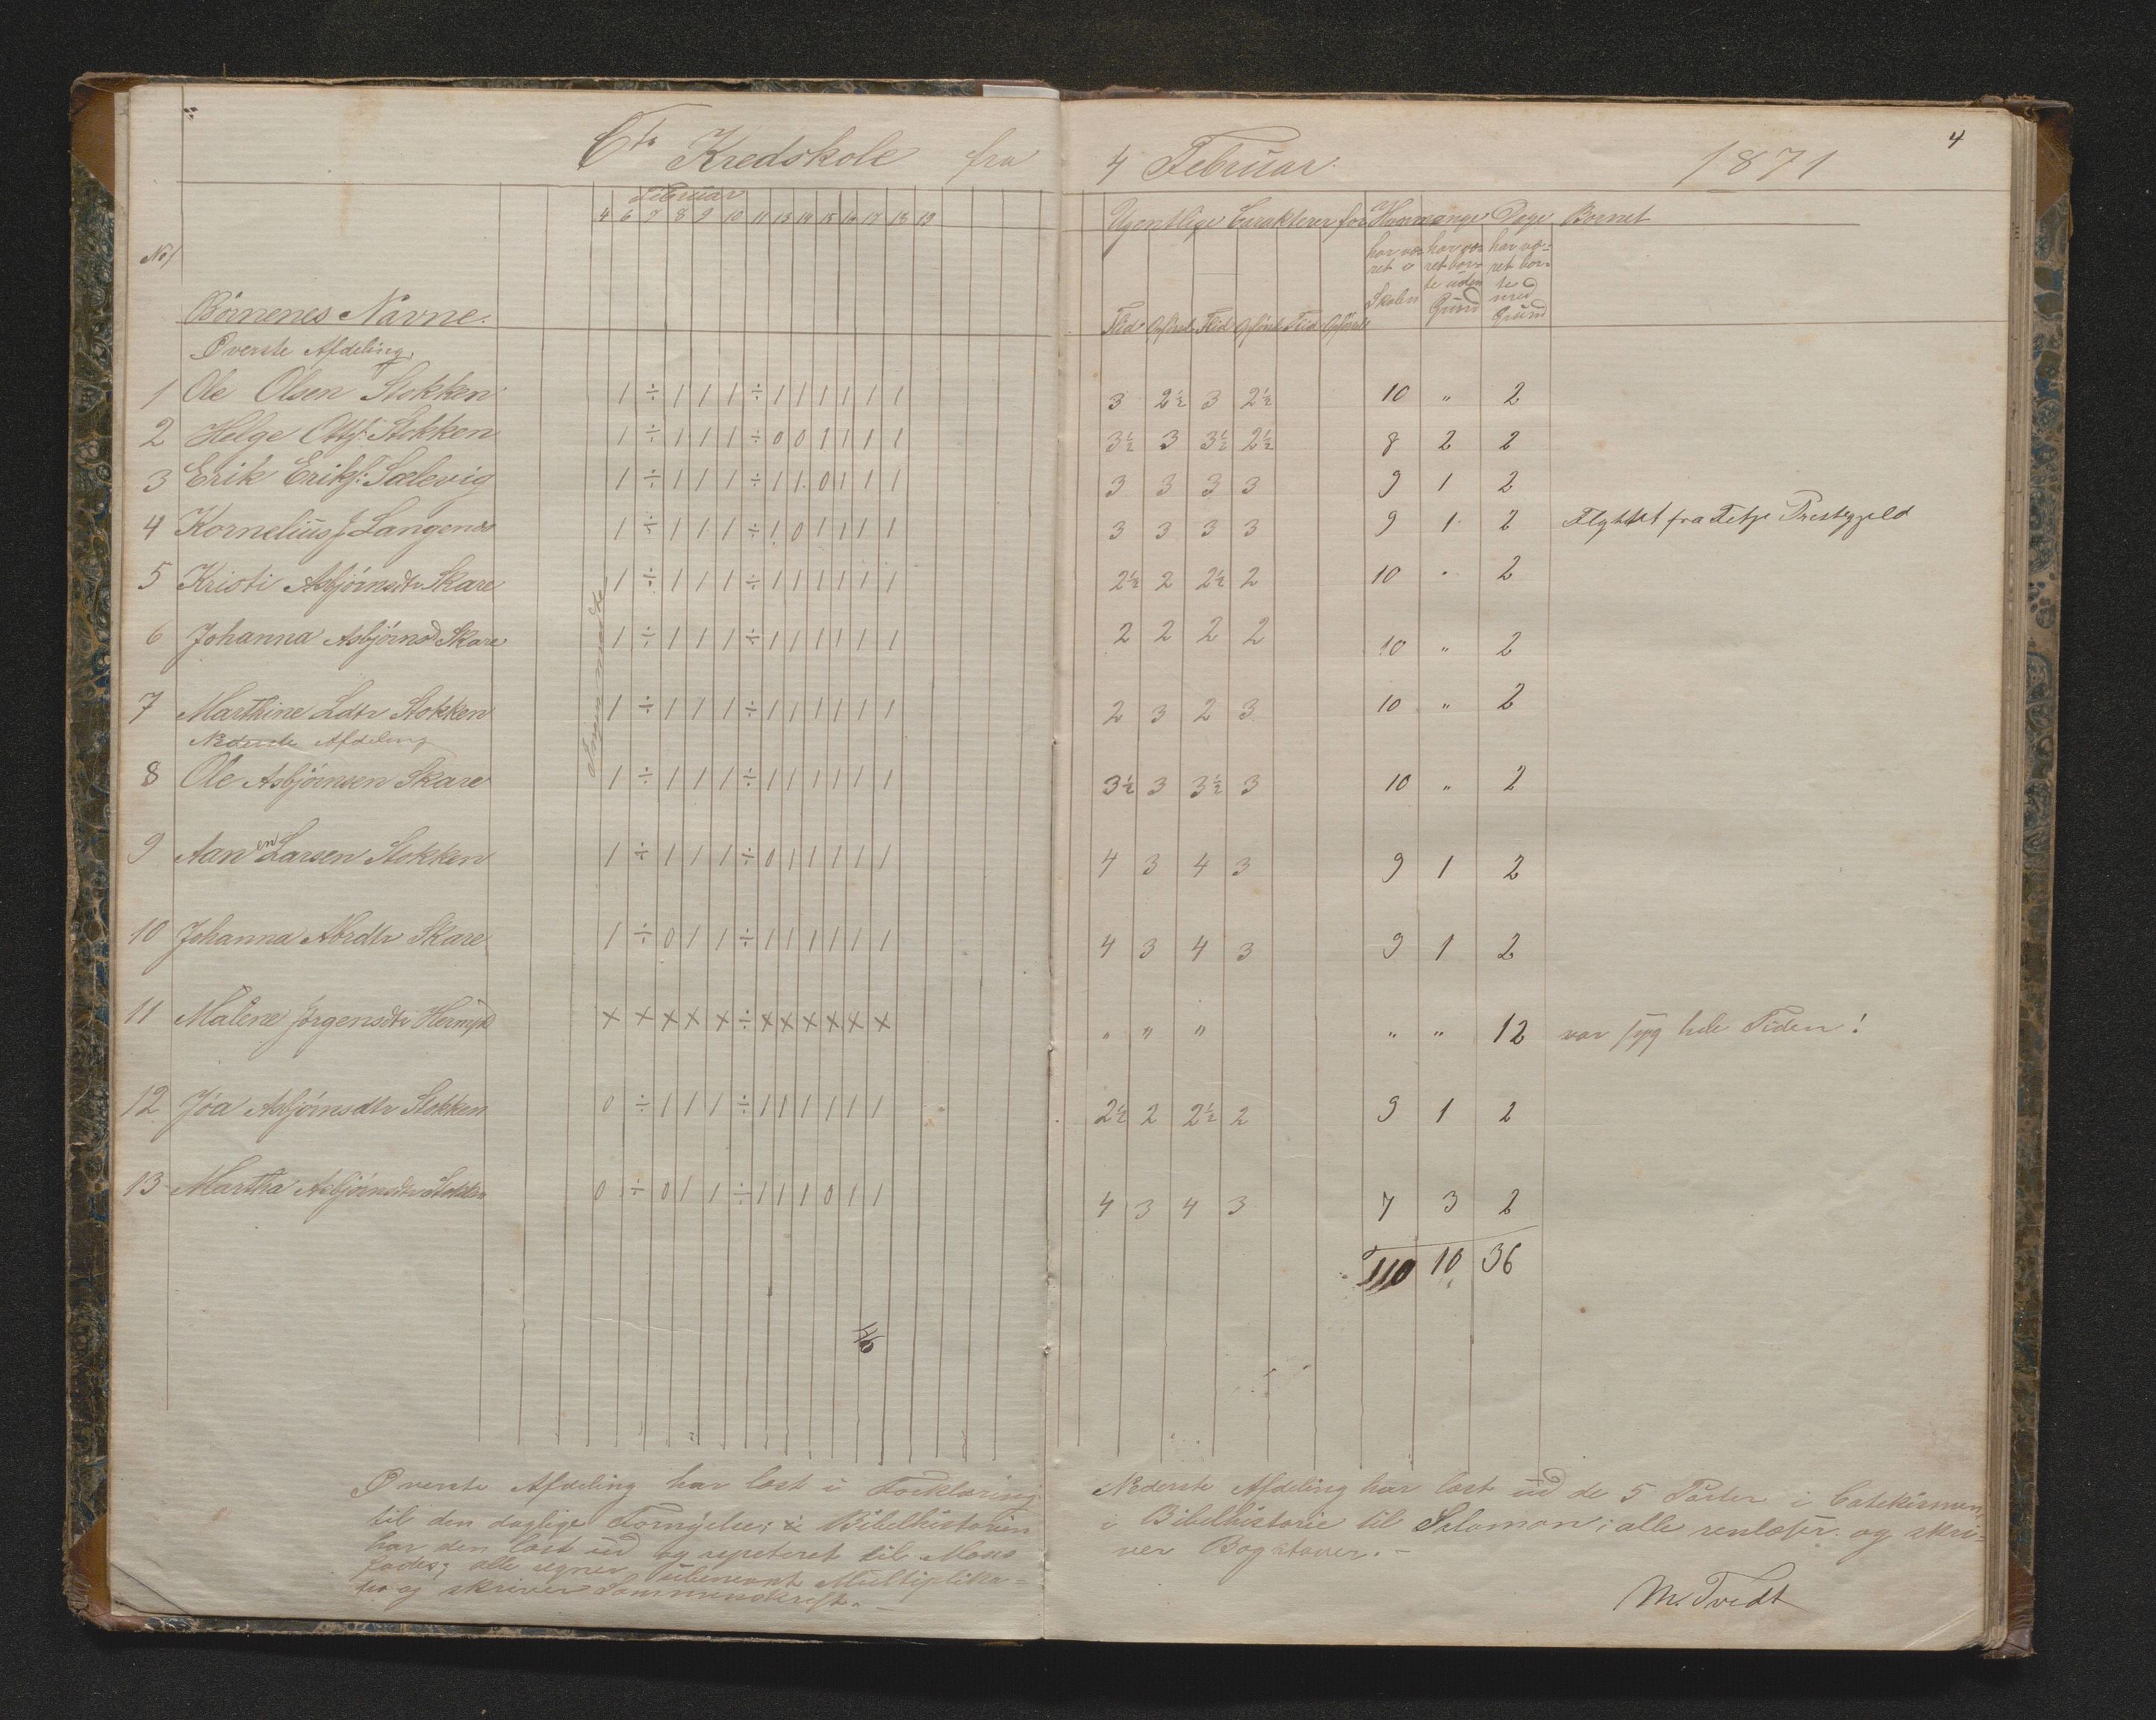 4
Kredskole fra 4 Februar 1871
Februar
4 6 7 8 9 10 11 13 14 15 16 17 18 19
Ugentlige Carakterer for Hvormange Dage Barnet
har væ- har væ- har væ-
ret i ret bor- ret bor-
Skolen te uden te med
Grund Grund
No/
Børnenes Navne.
Flid Opførsel Flid Opførsel Flid Opførsel
Øverste Afdeling.
1 Ole Olsen Stokken 1 ÷ 1 1 1 ÷ 1 1 1 1 1 1 3 2½ 3 2½ 10 " 2
2 Helge Stokken 1 ÷ 1 1 1 ÷ 0 0 1 1 1 1 3½ 3 3½ 2½ 8 2 2
3 Erik Eriks: Sælevig 1 ÷ 1 1 1 ÷ 1 1 0 1 1 1 3 3 3 3 9 1 2
4 Kornelius J Langenæs 1 ÷ 1 1 1 ÷ 1 0 1 1 1 1 3 3 3 3 9 1 2 Flyttet fra Prestegjeld
5 Kristi Asbjørnsdtr Skare 1 ÷ 1 1 1 ÷ 1 1 1 1 1 1 2½ 2 2½ 2 10 " 2
6 Johanna Asbjørnsd Skare 1 ÷ 1 1 1 ÷ 1 1 1 1 1 1 2 2 2 2 10 " 2
7 Marthine Ldtr Stokken 1 ÷ 1 1 1 ÷ 1 1 1 1 1 1 2 3 2 3 10 " 2
Nederste Afdeling
8 Ole Asbjørnsen Skare 1 ÷ 1 1 1 ÷ 1 1 1 1 1 1 3½ 3 3½ 3 10 " 2
9 Aanen Larsen Stokken 1 ÷ 1 1 1 ÷ 0 1 1 1 1 1 4 3 4 3 9 1 2
10 Johanna Skare 1 ÷ 0 1 1 ÷ 1 1 1 1 1 1 4 3 4 3 9 1 2
11 Malene Jørgensdtr x x x x x ÷ x x x x x x " " " " " 12 var syg hele Tiden!
12 Asbjørnsdtr Stokken 0 ÷ 1 1 1 ÷ 1 1 1 1 1 1 2½ 2 2½ 2 9 1 2
13 Martha Asbjørnsdtr Stokken 0 ÷ 0 1 1 ÷ 1 1 1 0 1 1 4 3 4 3 7 3 2
110 10 36
Ingen mødte
Øverste Afdeling har læst i Forklaring
til den daglige Fornyelse; i Bibelhistorien
har den læst ud og repeteret til Mose
alle regner ubenævnt Multiplika-
og skriver Sammenskrift.
Nederste Afdeling har læst ud de 5 Parter i Catekismen,
i Bibelhistorie til Salomon; alle renlæser og skri-
ver Bogstaver.
M. Tvedt